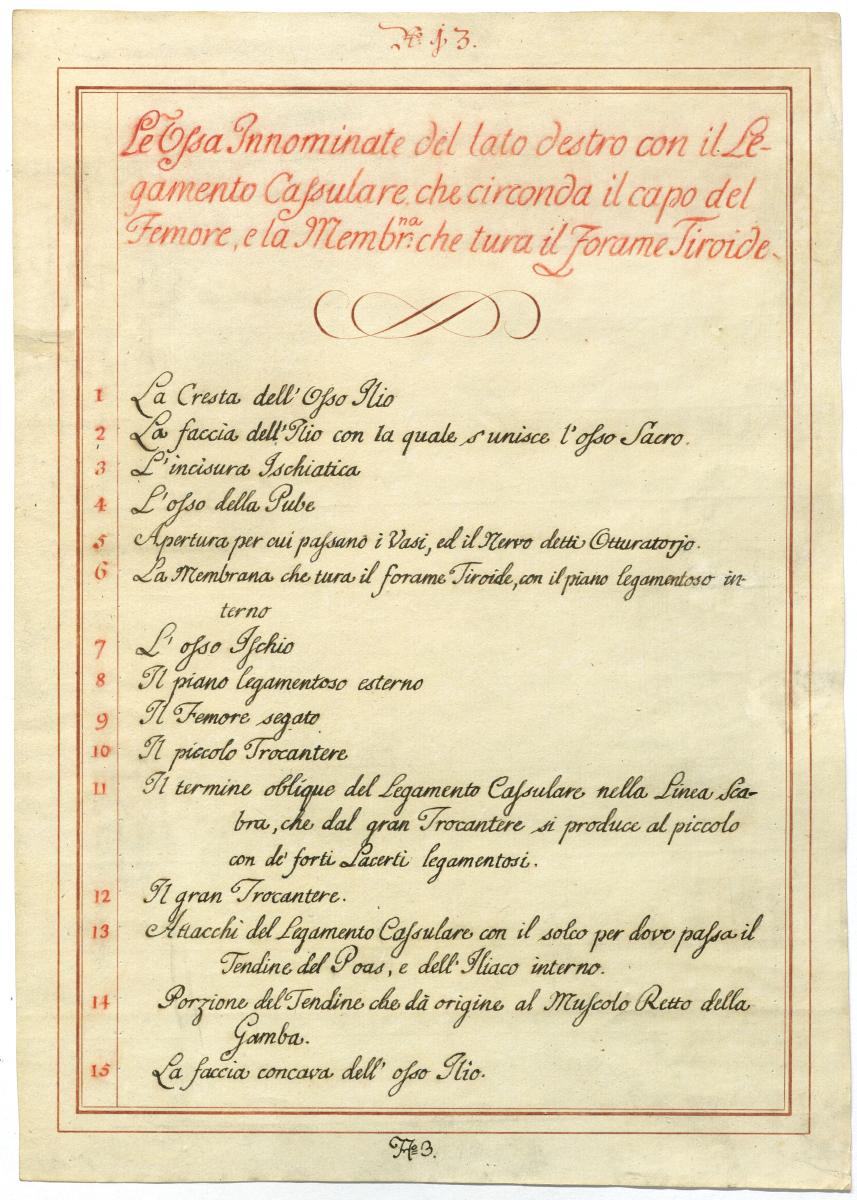 Nº 3.
Le Ossa Innominate del lato destro con il Le-
gamento Caſsulare, che circonda il capo del
Femore, e la Membr.na che tura il Forame Tiroide.
1 La Cresta dell' Oſso Ilio
2 La faccia dell'Ilio con la quale s'unisce l'oſso Sacro.
3 L'incisura Ischiatica
4 L'oſso della Pube
5 Apertura per cui paſsano i Vasi, ed il Nervo detti Otturatorjo.
6 La Membrana che tura il forame Tiroide, con il piano legamentoso in-
terno
7 L' oſso Iſchio
8 Il piano legamentoso esterno
9 Il Femore segato
10 Il piccolo Trocantere
11 Il termine oblique del Legamento Caſsulare nella Linea Sca-
bra, che dal gran Trocantere si produce al piccolo
con de' forti Lacerti legamentosi.
12 Il gran Trocantere.
13 Attacchi del Legamento Caſsulare con il solco per dove paſsa il
Tendine del Poas, e dell'Iliaco interno.
14 Porzione del Tendine che dà origine al Muſcolo Retto della
Gamba.
15 La faccia concava dell' oſso Ilio.
Nº 3.